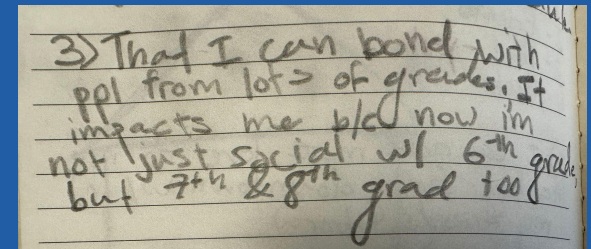 3) That I can bond with
ppl from lots of grades. It
impacts me b/c now im
not just social w/ 6th grade,
but 7th & 8th grad too